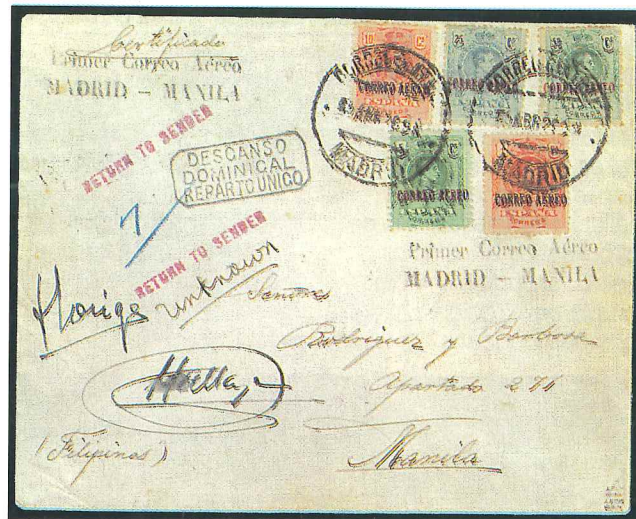 Certificado
Primer Correo Aéreo
MADRID – MANILA
RETURN TO SENDER
DESCANSO
DOMINICAL
REPARTO UNICO
RETURN TO SENDER
10 Cs
CORREO AEREO
CORREO AEREO
CORREO AEREO
MADRID
MADRID
CORREO AEREO
CORREO AEREO
Primer Correo Aéreo
MADRID – MANILA
unknown
Señores
Rodriguez y Barbosa
Apartado 271
Manila
(Filipinas)